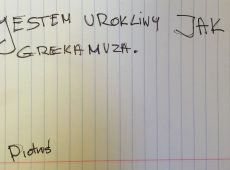 JESTEM UROKLIWY JAK
GREKAMUZA.
Piotruś